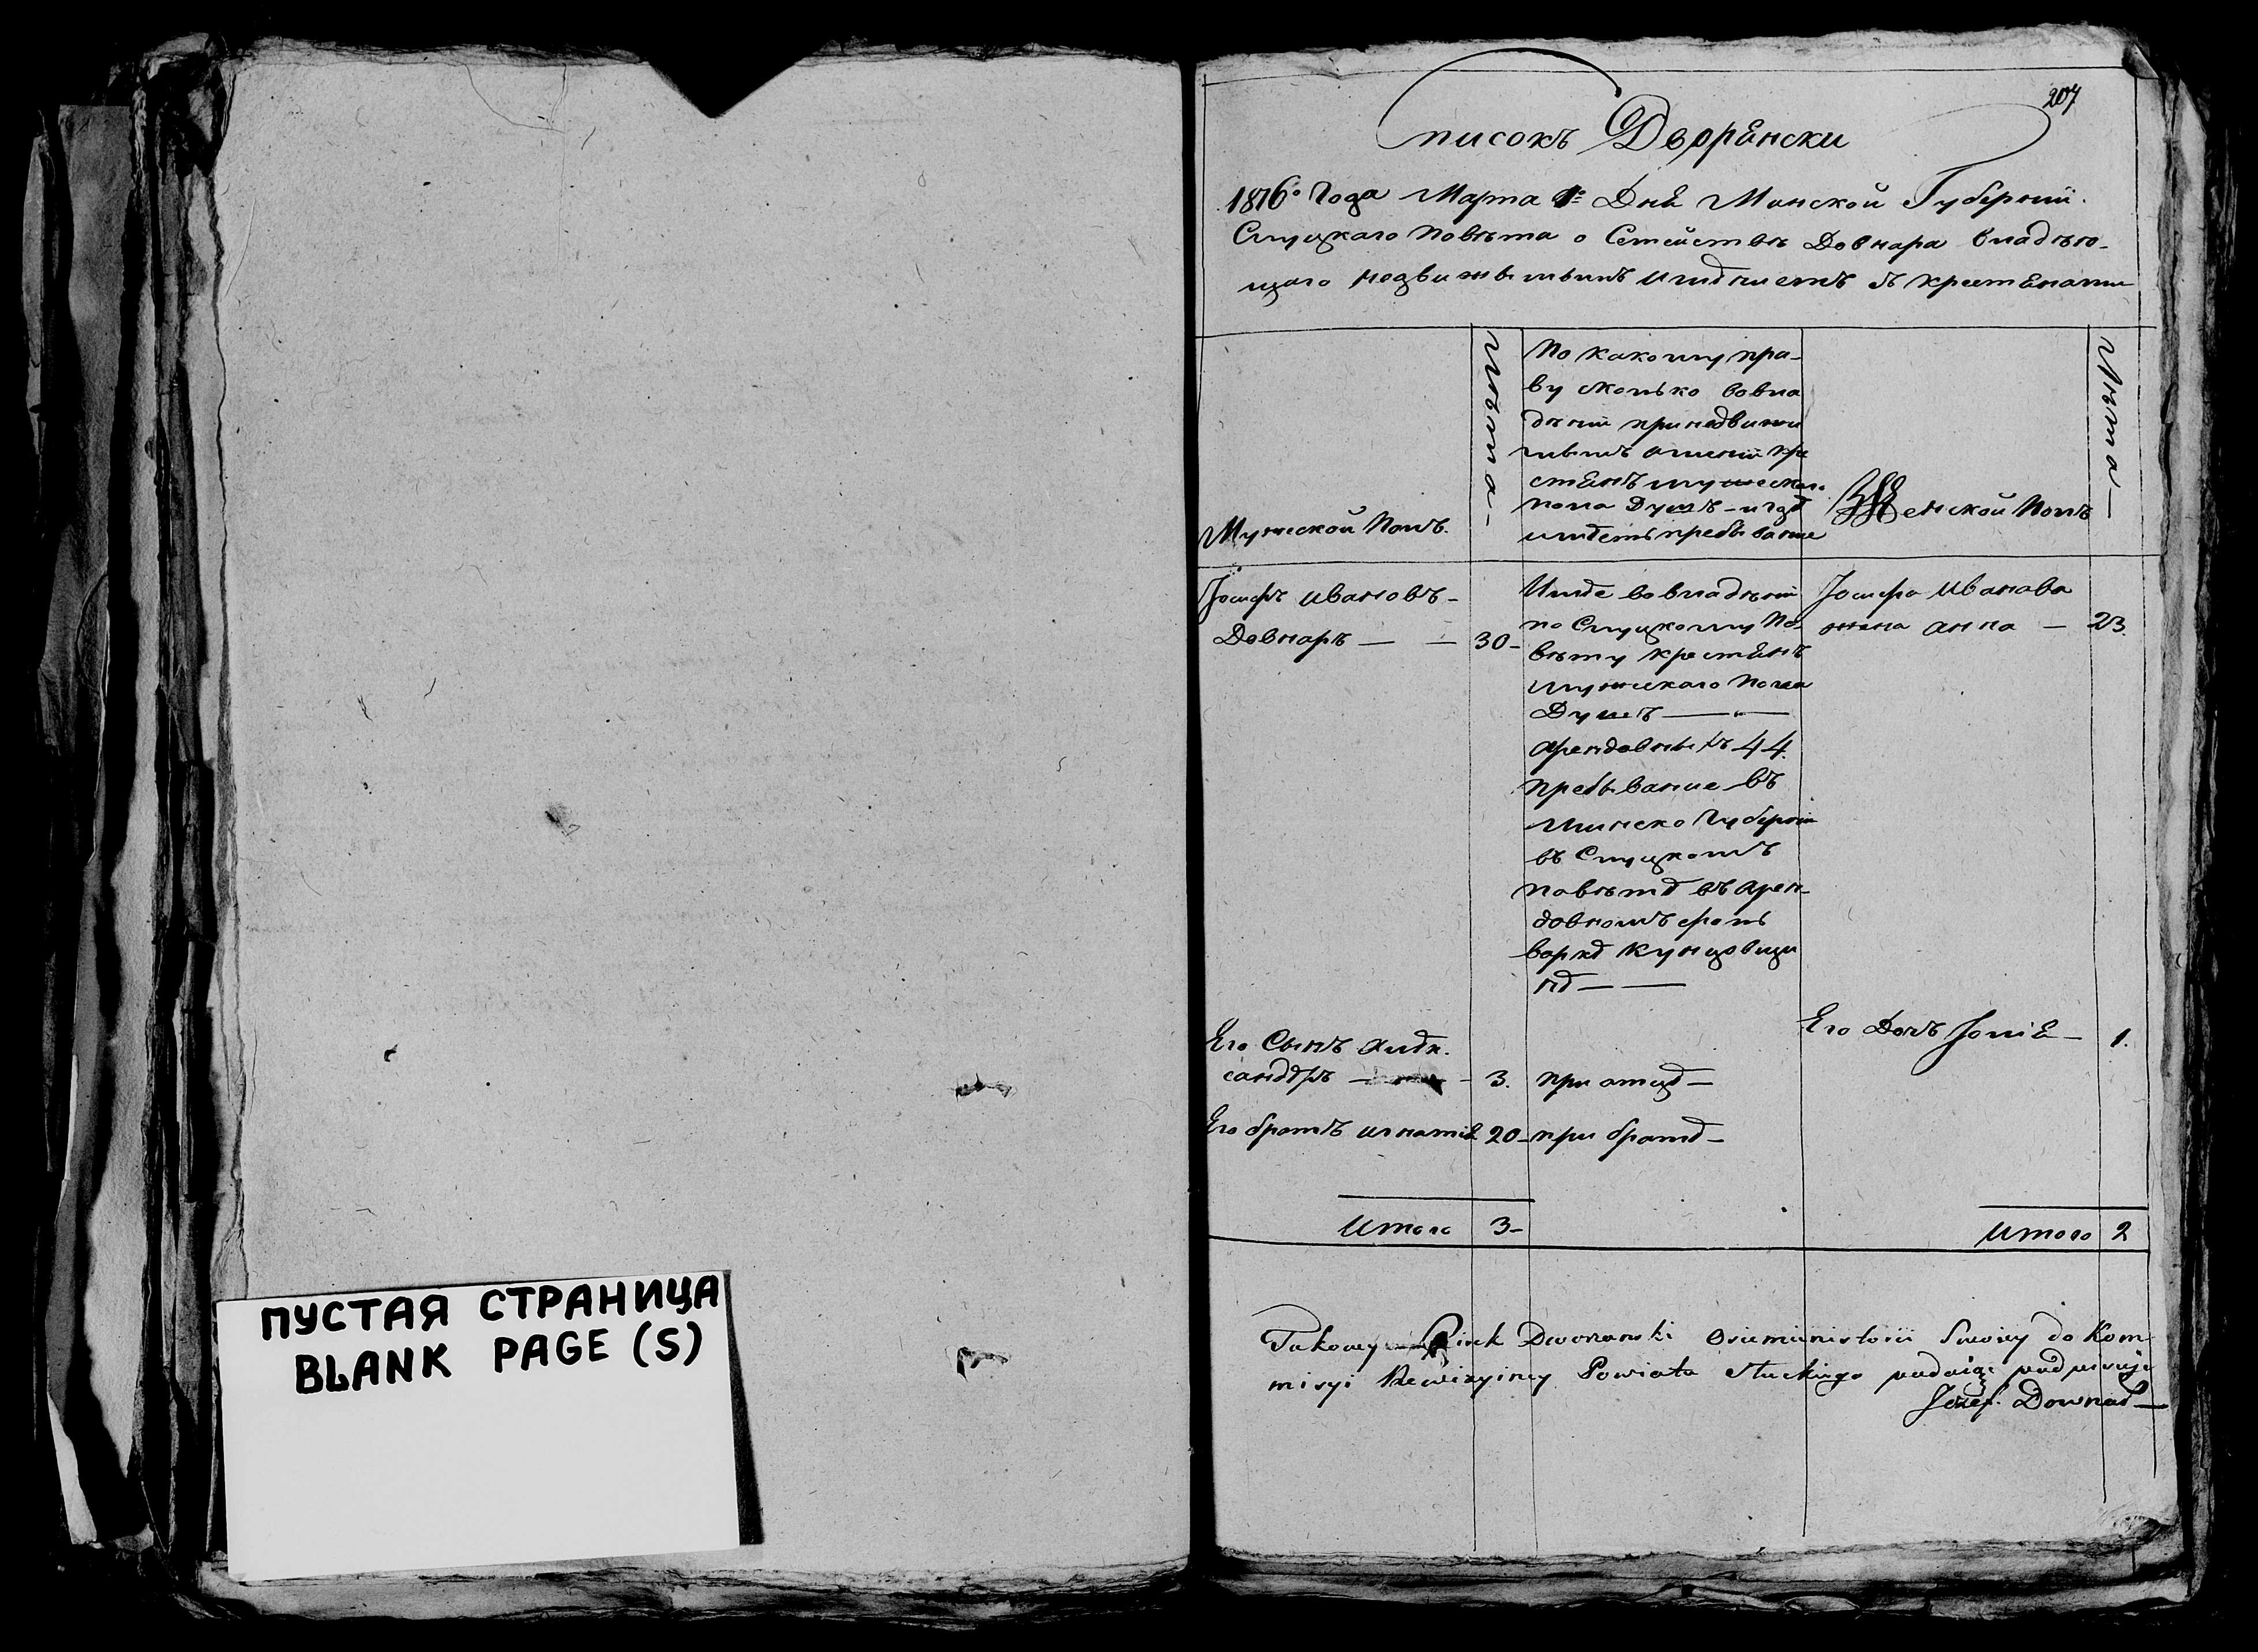 ПУСТАЯ СТРАНИЦА
BLANK PAGE (S)
207
Список Дворянски
1816го Года Марта 1го Дня Минской Губернiй
Слуцкаго Повѣта о Семействѣ Довнара владѣю-
щаго недвижымымъ имѣниемъ съ крестянами
Мужеской Полъ
Лѣта
По какому пра-
ву сколько вовла
дѣнiи при недвижи
мымъ имѣнiи кре
стянъ мужескаго
пола Душъ - и гдѣ
имѣетъ пребывание
Женской Полъ
Лѣта
Iосифъ Ивановъ -
Довнаръ — — 30 -
Имѣе во владѣнiи
по Слуцкому По-
вѣту крестянъ
мужескаго Пола
Душъ — " —
арендовныхъ 44.
пребывание въ
Минско Губернiи
въ Слуцкомъ
повѣтѣ въ арен-
довномъ фоль
варкѣ Кунцовщи
нѣ — —
Iосифа Иванова
жена анна — 23.
Его Дочъ Зофiя — 1.
Его Сынъ Алѣк
сандѣръ — 3. при отцѣ —
Его братъ игнатiй 20 - при братѣ —
Итого 3 -
Итого 2
Takowy Spisek Dworanski Familii Swoiey do Kom
misyi Rewizyiney Powiatu Sluckiego podaiąc podpisuję
Jozef Downar —